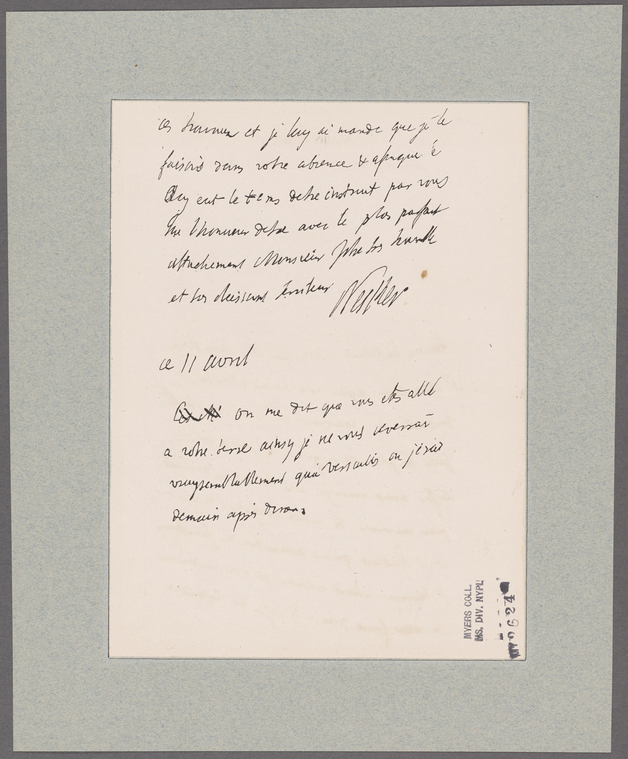 ces travaux et je luy ai mandé que je le
faisois dans votre absence & afinque
luy eut le tems detre instruit par vous
Jay lhonneur detre avec le plus parfait
attachement Monsieur votre tres humble
et tres obeissant serviteur Necker
ce 11 avril
on me dit que vous etes allé
a votre terre ainsy je ne vous reverrai
vraysemblablement qua versailles ou j'irai
demain après diner.
MYERS COLL.
MS. DIV. NYPL
924